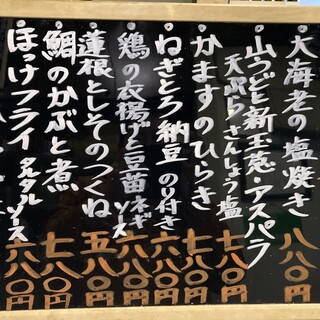 大海老の塩焼き 八八〇円
山うどと新玉葱、アスパラ
天ぷら さんしょう塩 七八〇円
かますのひらき 七八〇円
ねぎとろ納豆 のり付き 六八〇円
鶏の衣揚げと豆苗ネギソース 六八〇円
蓮根としそのつくね 五八〇円
鯛のかぶと煮 七八〇円
ほっけフライ タルタルソース 六八〇円